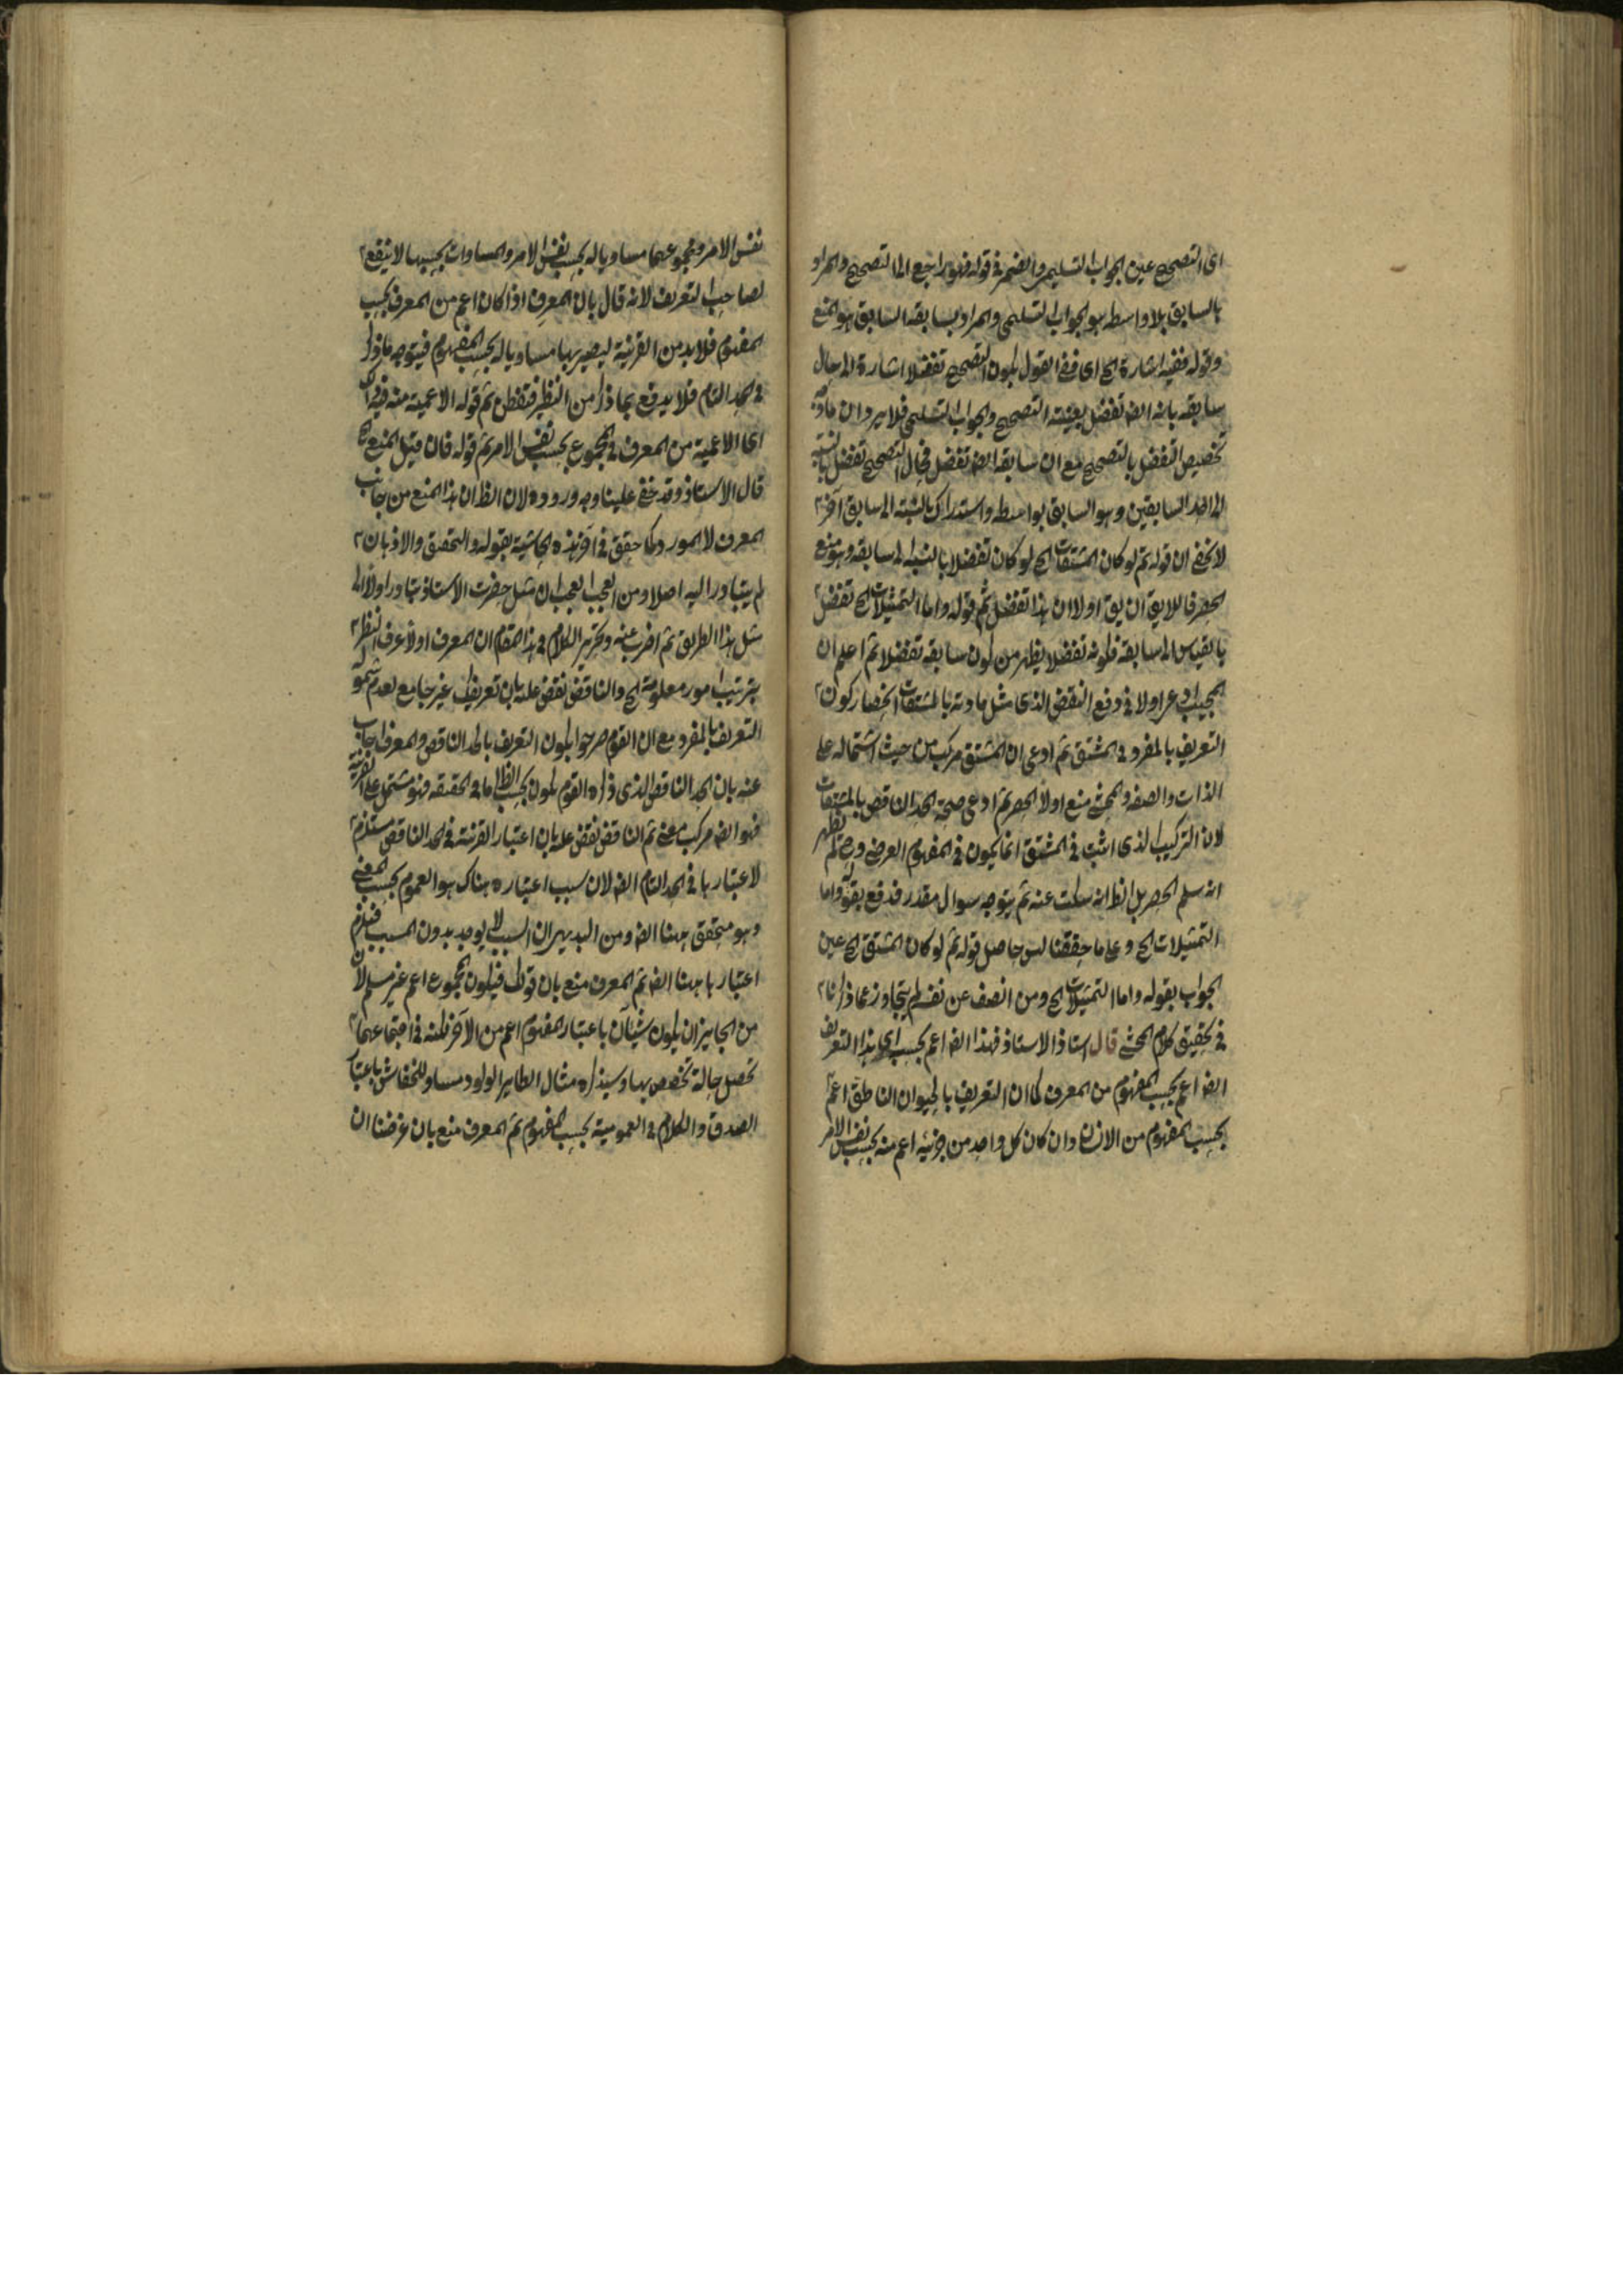 اى التصحيح عين الجواب التسليمى والضمير فى قوله فهو راجع الى التصحيح والمراد
بالسابق بلا واسطه هو الجواب التسليمى والمراد بسابقه السابق هو المنع
وقوله ففيه اشارة الخ اى ففى القول بكون التصحيح تفضلا اشارة الى حال
سابقه بانه ايضا تفضل بعينه التصحيح والجواب التسليمى فلا يرد ان
تخصيص التفضل بالتصحيح مع ان سابقه ايضا تفضل فى ال التصحيح تفضل بالنسبة
الى احد السابقين وهو السابق بواسطه واستدراك بالنسبة الى سابق آخر
لا يخفى ان قوله ثم لو كان المشتقات الخ لو كان تفضلا بالنسبة الى سابقه وهو منع
الحصر فاللايق ان يق اولا ان هذا تفضل ثم قوله واما التمثيلات الخ تفضل
بالقياس الى سابقه فكونه تفضلا يظهر من كون سابقه تفضلا ثم اعلم ان
المجيب ادعى اولا فى دفع النقض الذى مثل مادته بالمشتقات انحصار كون
التعريف بالمفرد فى المشتق ثم ادعى ان المشتق مركب من حيث اشتماله على
الذات والصفه والمحشى منع اولا الحصر ثم ادعى صحة الحد الناقص بالمشتقات
لان التركيب الذى اثبت فى المشتق انما يكون فى المفهوم العرضى وح لم يظهر
انه سلم الحصر بل الظ انه سكت عنه ثم يتوجه سوال مقدر فدفع بقوله واما
التمثيلات الخ وعلى ما حققنا ليس حاصل قوله ثم لو كان المشتق الخ عين
الجواب بقوله واما التمثيلات الخ ومن انصف عن نفسه لم يتجاوز عما ذكرنا
فى تحقيق كلام المحشى قال استاذ الاستاذ فهذا ايضا اعم بحسب اى هذا التعريف
ايضا اعم بحسب المفهوم من المعرف كما ان التعريف بالحيوان الناطق اعم
بحسب المفهوم من الانسان وان كان كل واحد من جزئيه اعم منه بحسب نفس الامر
نفس الامر ومجموعهما مساويا له بحسب نفس الامر والمساوات بحسبها لا ينفع
لصاحب التعريف لانه قال بان المعرف اذا كان اعم من المعرف بحسب
المفهوم فلا بد من القرينة ليصير بها مساويا له بحسب المفهوم فيتوجه ما ذكر
فى الحد التام فلا يدفع بما ذكر من النظير فتفطن ثم قوله الاعمية منه فيه
اى الاعمية من المعرف فى المجموع بحسب نفس الامر ثم قوله فان قيل المنع الخ
قال الاستاذ وقد خفى علينا وجه وروده لان الظ ان هذا المنع من جانب
المعرف لا المورد كما حقق فى آخر هذه الحاشية بقوله والتحقيق والاذهان
لم يتبادر اليه اصلا ومن العجب العجاب ان مثل حضرت الاستاذ تبادر اولا الى
مثل هذا الطريق ثم اضرب عنه وتحرير الكلام فى هذا المقام ان المعرف اولا عرف النظر
بترتيب امور معلومة الخ والناقض نقض عليه بان تعريفك غير جامع لعدم شموله
التعريف بالمفرد مع ان القوم صرحوا بكون التعريف بالحد الناقص والمعرف اجاب
عنه بان الحد الناقص الذى ذكره القوم يكون بحسب الظ اما فى الحقيقه فهو مشتمل على القرينة
فهو ايضا مركب معنى ثم الناقض نقض عليه بان اعتبار القرينة فى الحد الناقص مستلزم
لاعتبارها فى الحد التام ايضا لان سبب اعتباره هناك هو العموم بحسب المعنى
وهو متحقق ههنا ايضا ومن البديهى ان السبب لا يوجد بدون المسبب فيلزم
اعتبارها ههنا ايضا ثم المعرف منع بان قولك فيكون المجموع اعم غير مسلم لان
من الجايز ان يكون شيئان باعتبار المفهوم اعم من الآخر لكنه فى اجتماعهما
تحصل حالة تخصص بها وسيذكره مثال الطاير الولود مساو للخفاش باعتبار
الصدق والكلام فى العمومية بحسب المفهوم ثم المعرف منع بان غرضنا ان